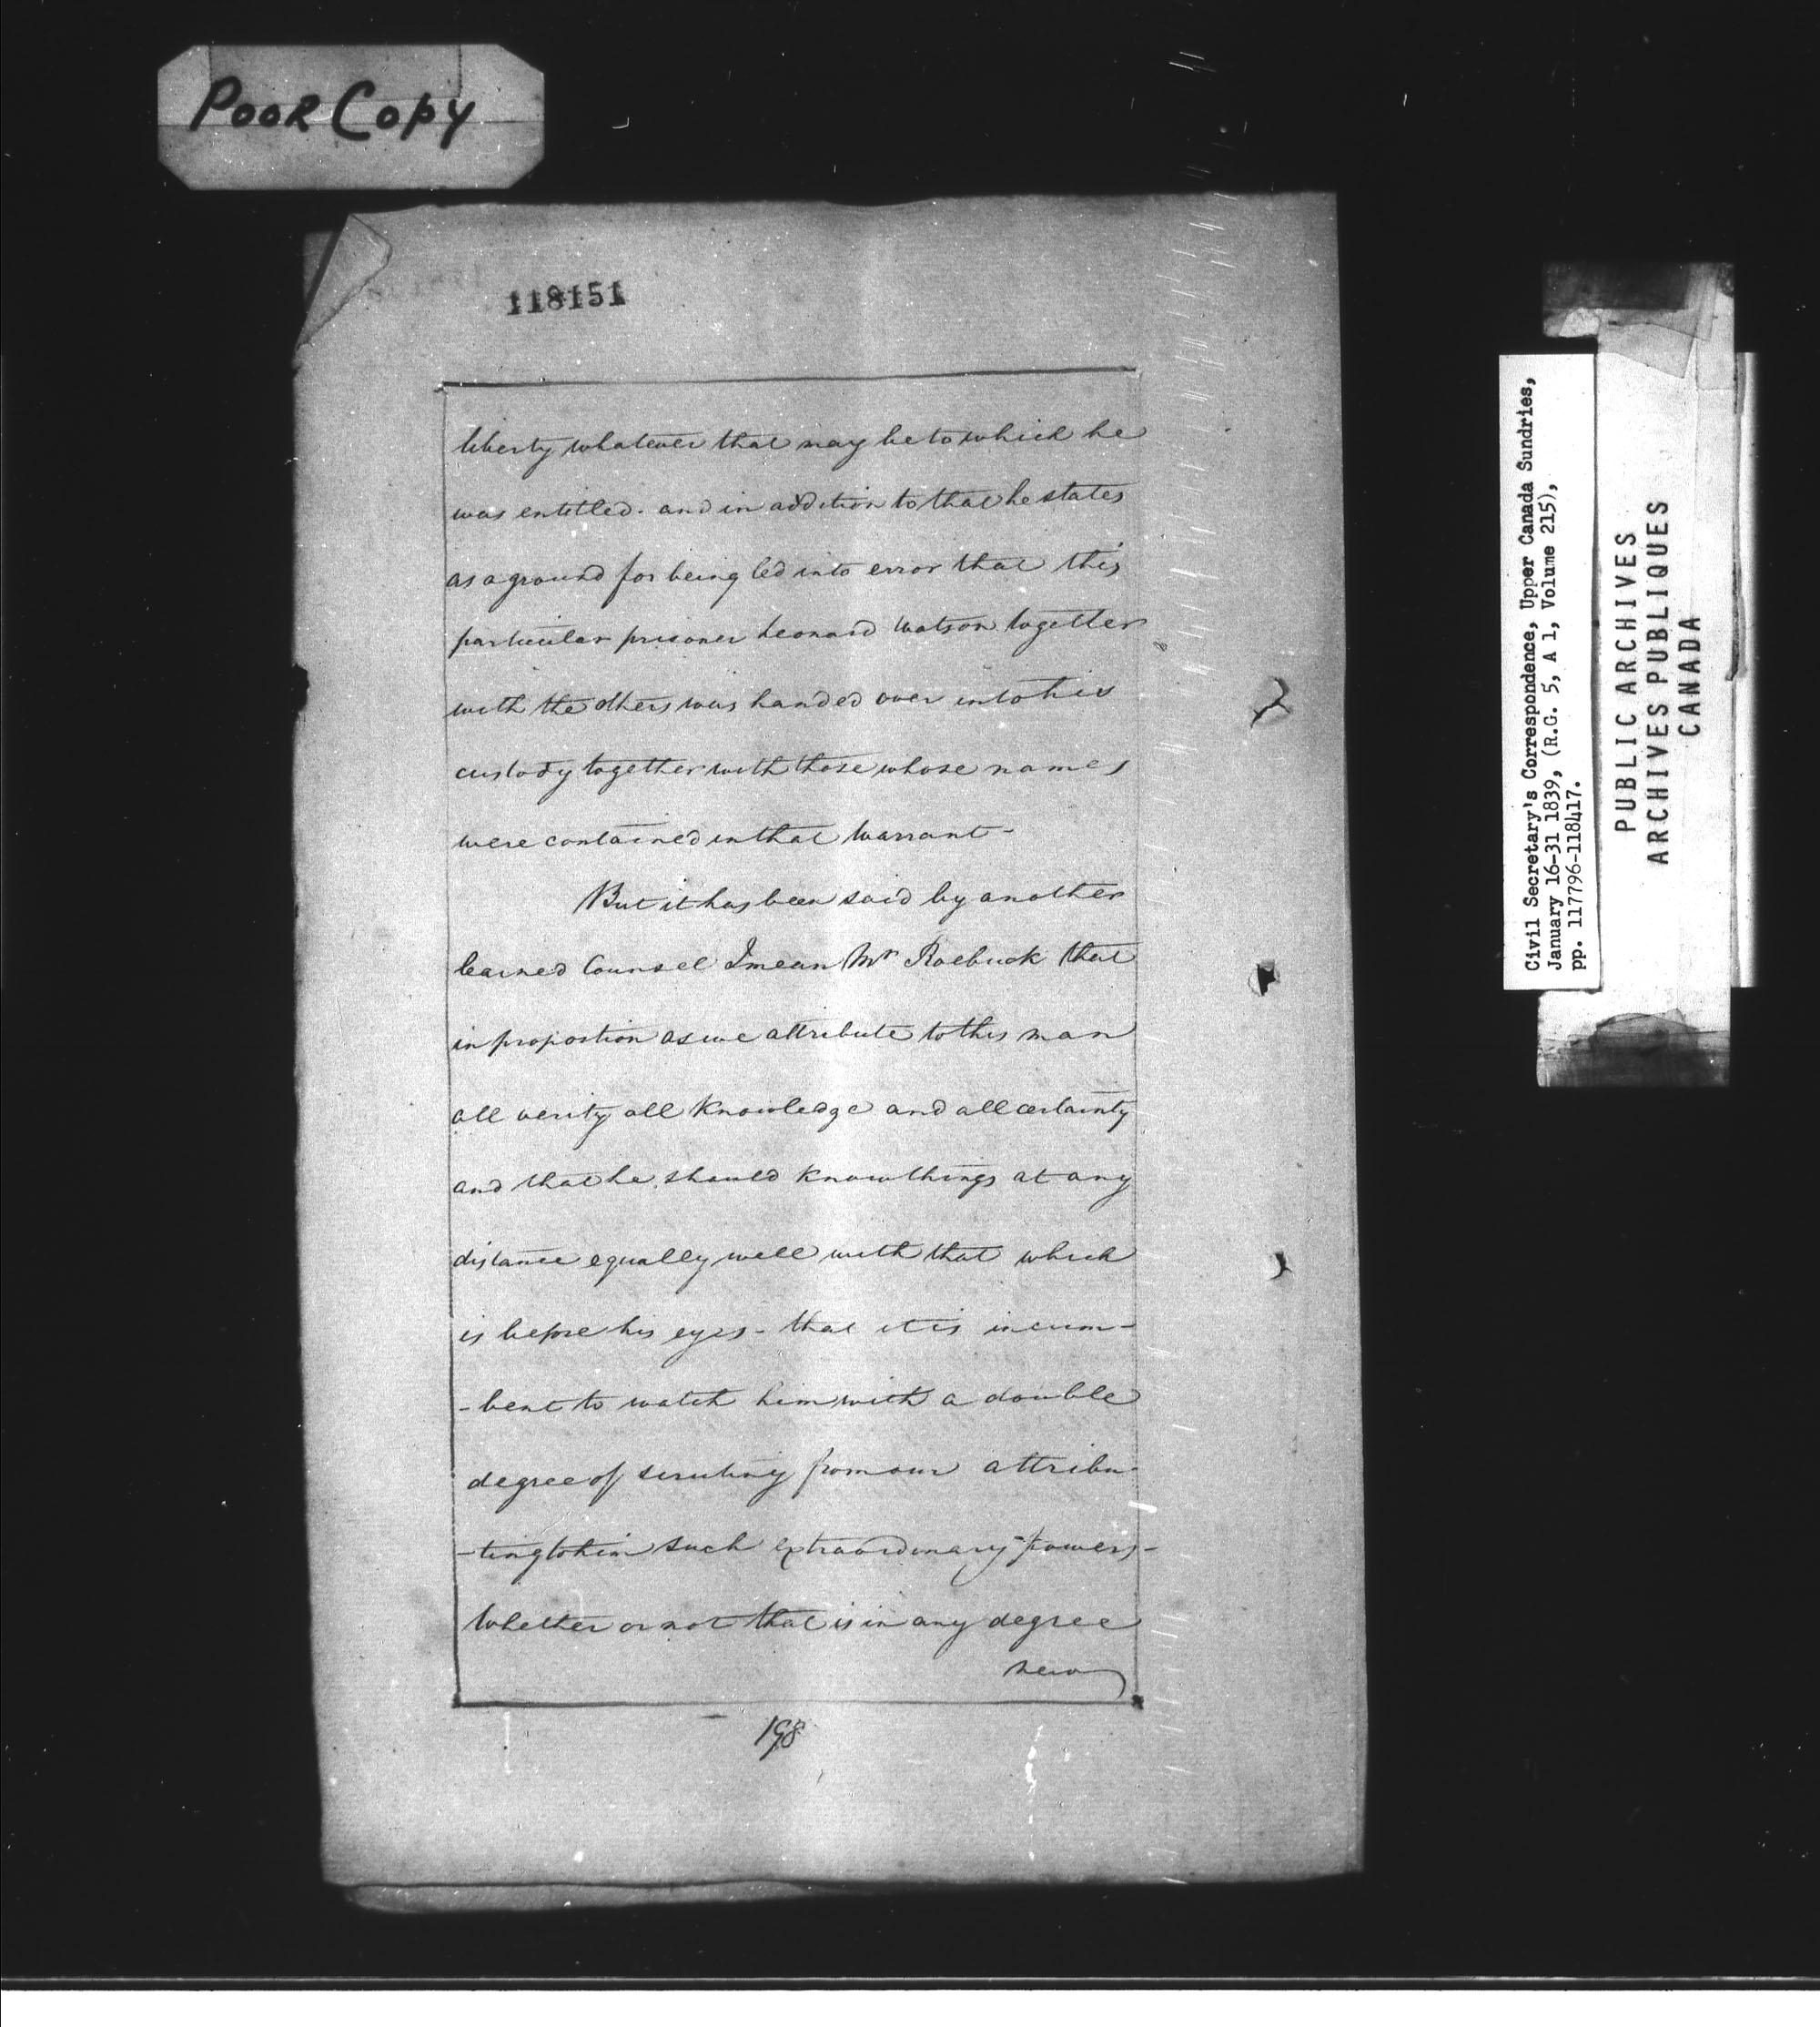 Poor Copy
118151
liberty whatever that may be to which he
was entitled. and in addition to that he states
as a ground for being led into error that this
particular prisoner Leonard Watson together
with the others was handed over into his
custody together with those whose names
were contained in that Warrant-
But it has been said by another
learned Counsel I mean Mr Roebuck that
in proportion as we attribute to this man
all verity all knowledge and all certainty
and that he should know things at any
distance equally well with that which
is before his eyes - that it is incum-
-bent to watch him with a double
degree of scrutiny from our attribu-
-ting to him such extraordinary powers-
Whether or not that is in any degree
new
198
Civil Secretary's Correspondence, Upper Canada Sundries,
January 16-31 1839, (R.G. 5, A 1, Volume 215),
pp. 117796-118417.
PUBLIC ARCHIVES
ARCHIVES PUBLIQUES
CANADA